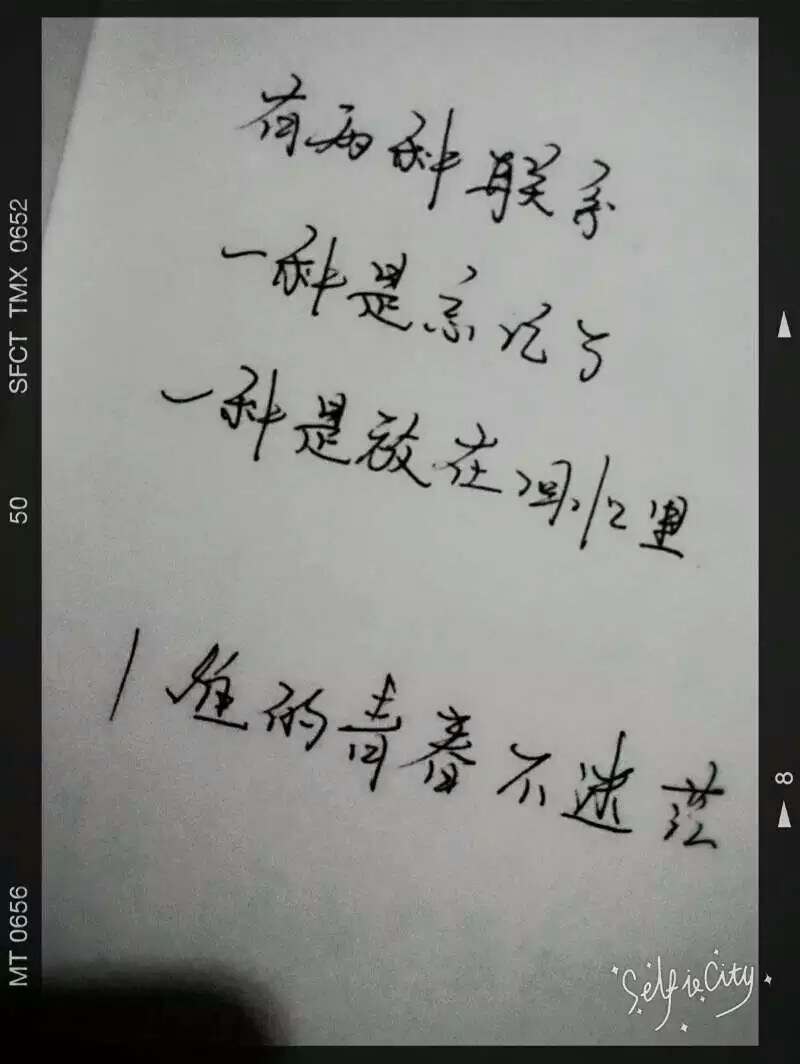 有两种联系
一种是
一种是放在回忆里
谁的青春不迷茫
SFCT TMX 0652
50
MT 0656
8
SelfieCity